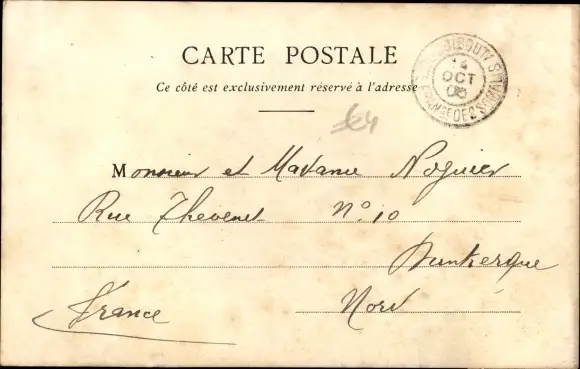 CARTE POSTALE
Ce côté est exclusivement réservé à l'adresse
DJIBOUTI
14
OCT
£24
Monsieur et Madame Noguier
Rue Thevenet N° 10
Dunkerque
France
Nord